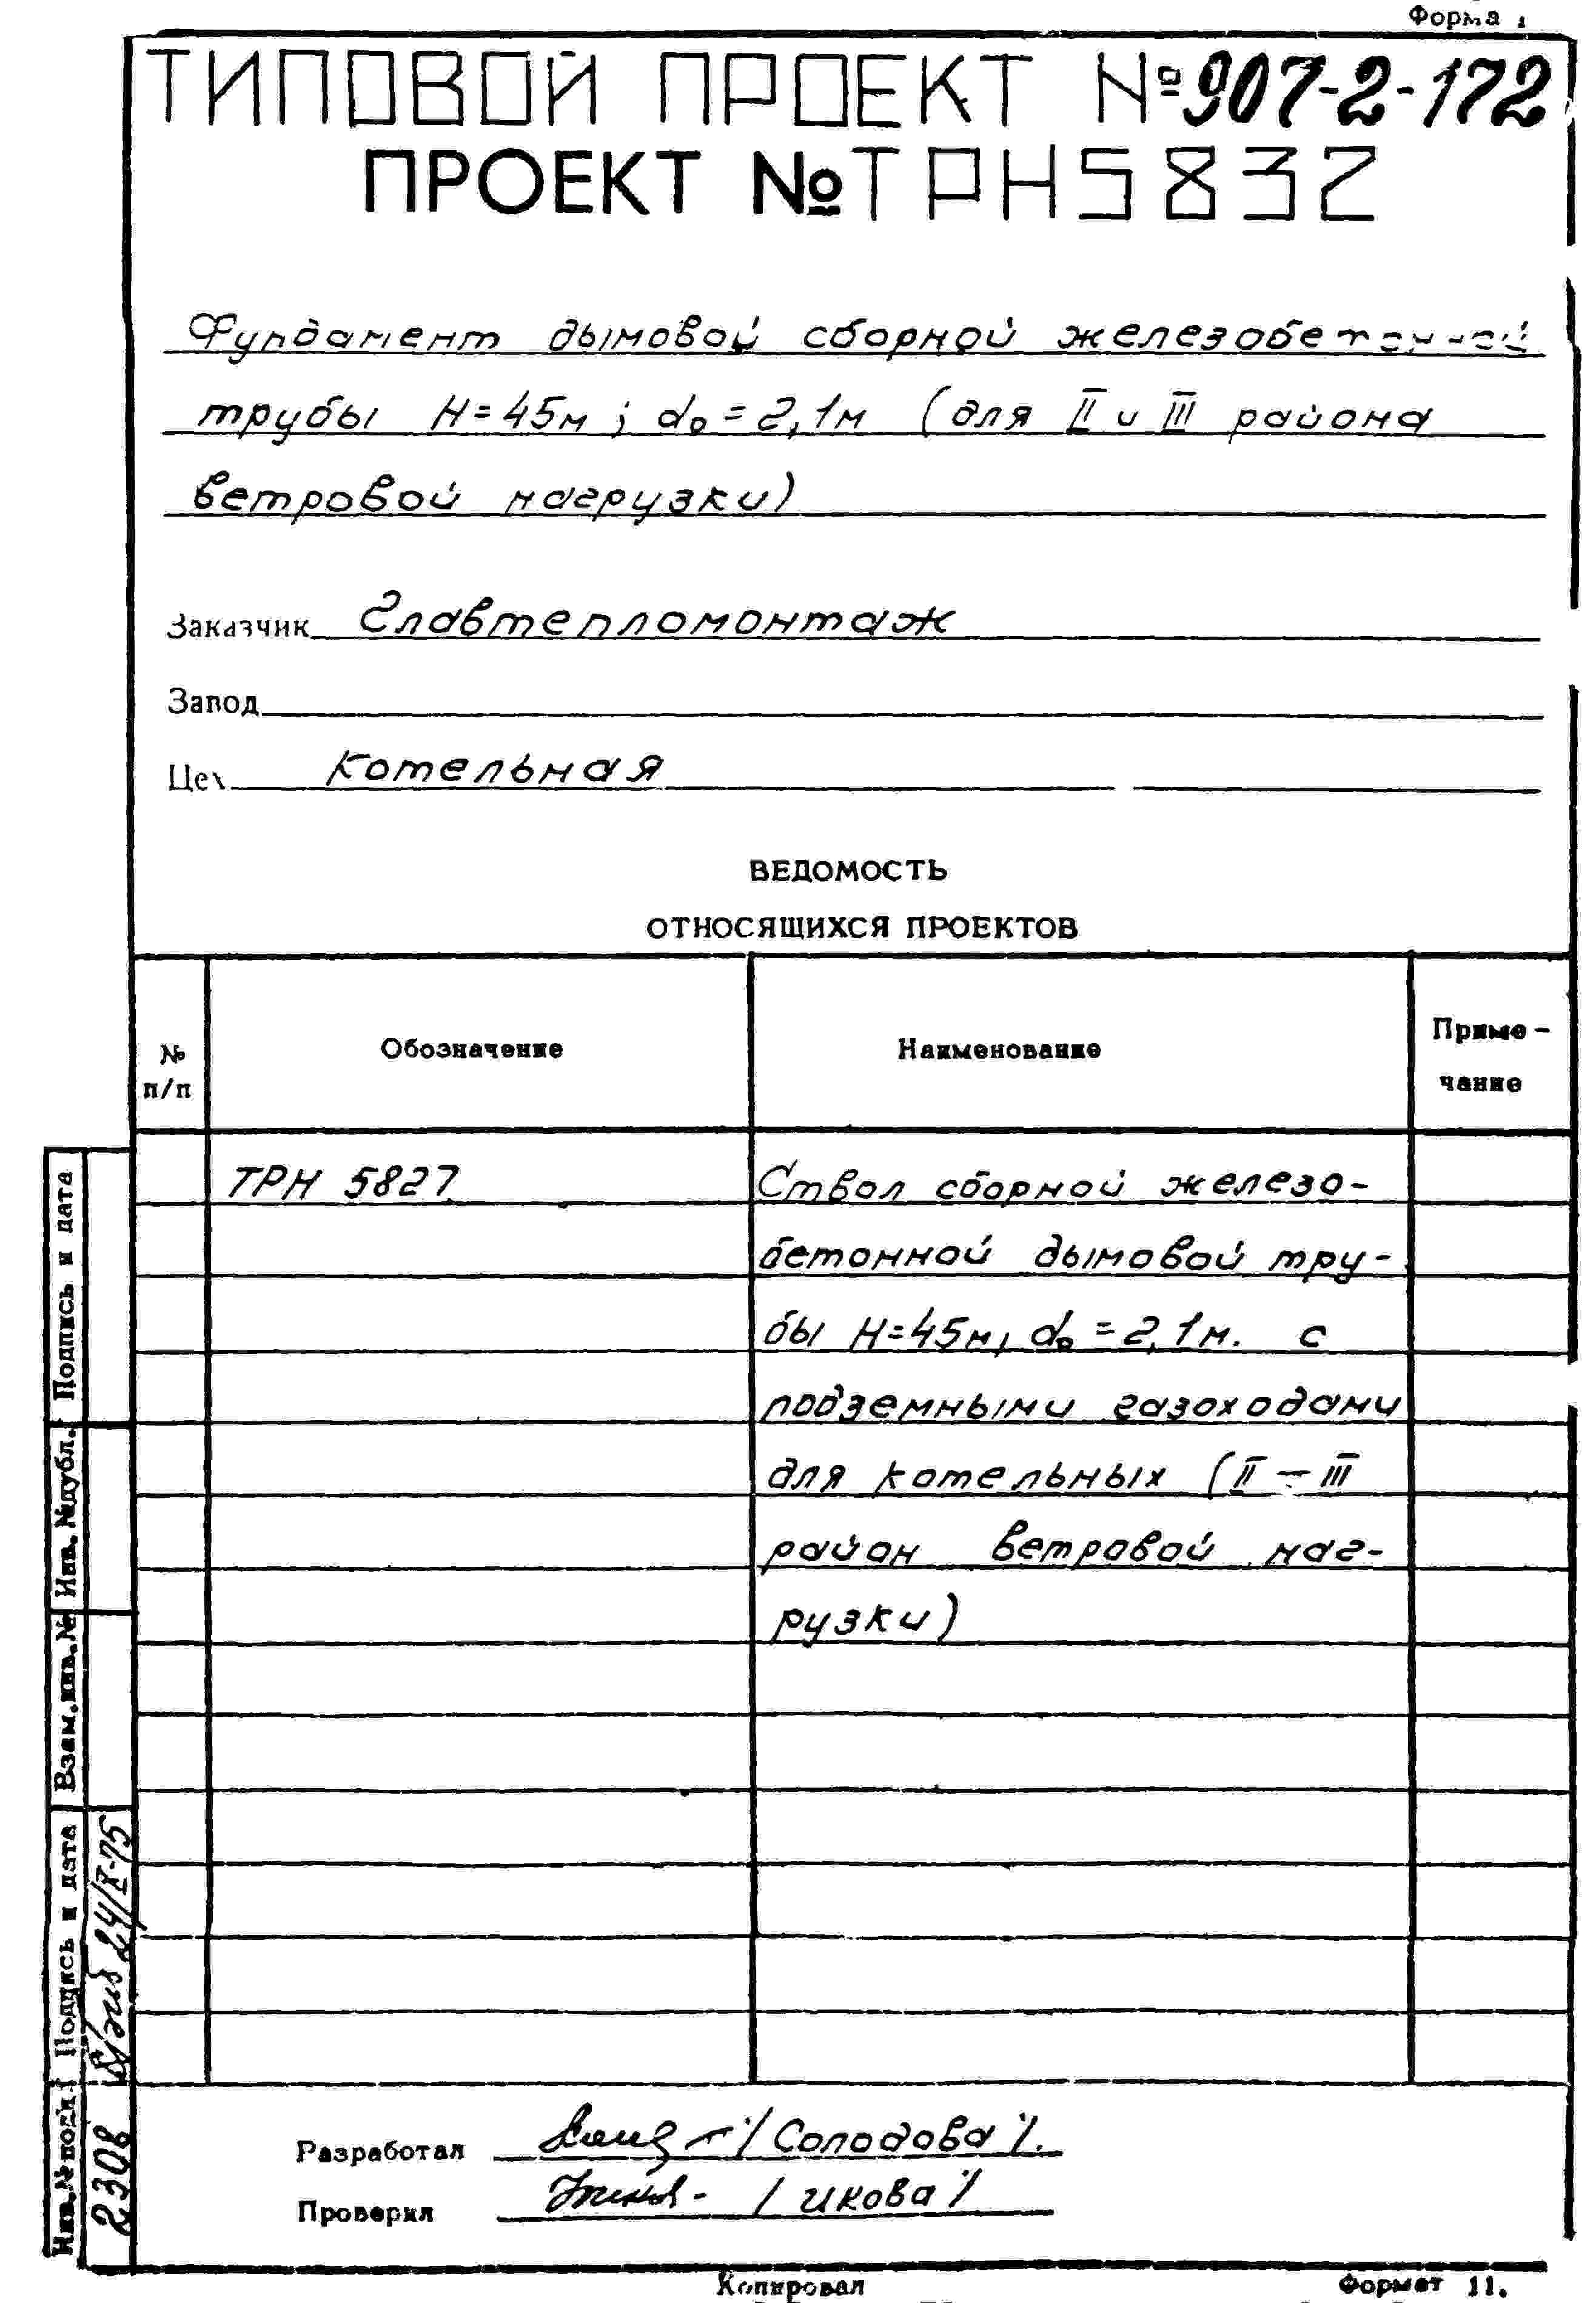 Форма 1
ТИПОВОЙ ПРОЕКТ №907-2-172
ПРОЕКТ №ТРН5832
Фундамент дымовой сборной железобетонной
трубы Н=45м; d₀=2,1м (для II и III района
ветровой нагрузки)
Заказчик Главтепломонтаж
Завод
Цех Котельная
ВЕДОМОСТЬ
ОТНОСЯЩИХСЯ ПРОЕКТОВ
№ п/п Обозначение Наименование Приме-
чание
ТРН 5827 Ствол сборной железо-
бетонной дымовой тру-
бы Н=45м, d₀=2,1м. с
подземными газоходами
для котельных (II – III
район ветровой наг-
рузки)
Разработал /Солодова/.
Проверил /Икова/
Копировал Формат 11.
Подпись и дата
Инв.№дубл.
Взам.инв.№
Подпись и дата 24/X-75
Инв.№подл. 2308